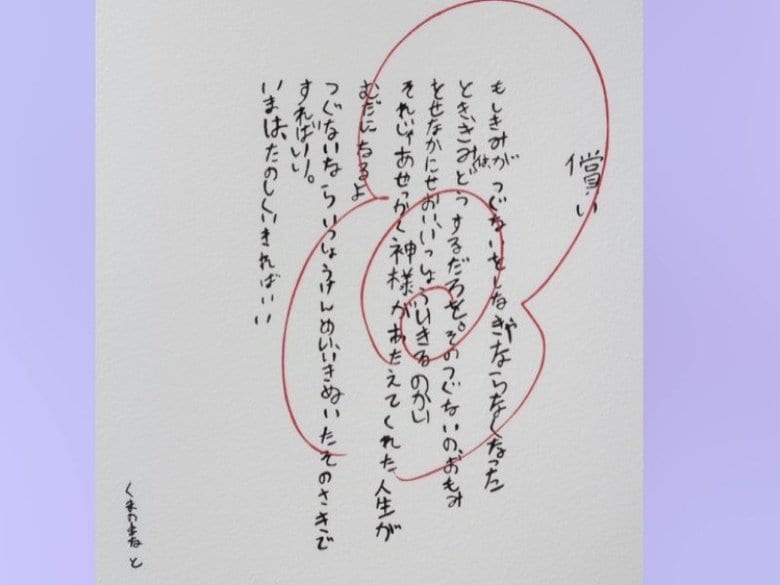 償い
もしきみがつぐないをしなきゃならなくなった
とききみはどうするだろを。そのつぐないの、おもみ
をせなかにせおい、いっしょういきるのかい
それじゃあせっかく神様があたえてくれた人生が
むだになるよ
つぐないならいっしょうけんめいいきぬいたそのさきで
すればいい。
いまは、たのしくいきればいい
くまのまなと